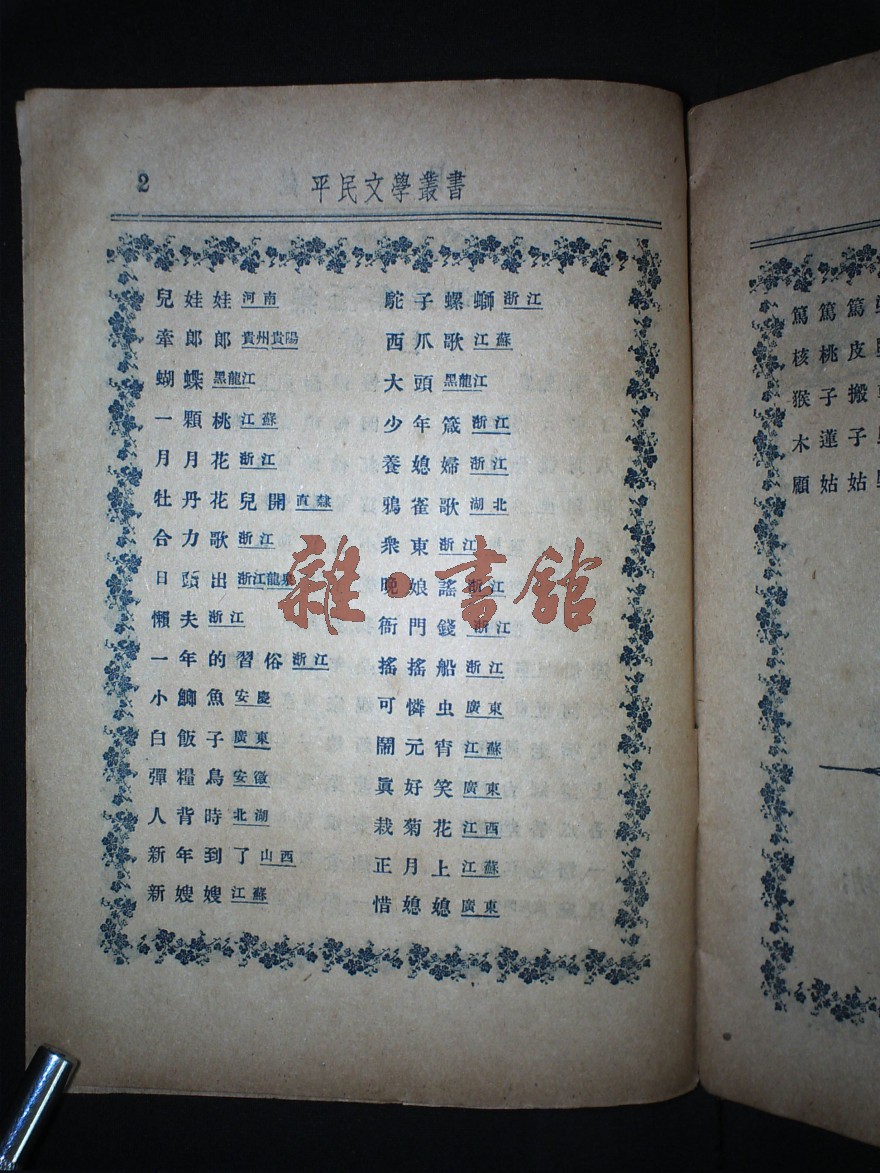 2
平民文學叢書
兒娃娃 河南
牽郎郎 貴州貴陽
蝴蝶 黑龍江
一顆桃 江蘇
月月花 浙江
牡丹花兒開 直隸
合力歌 浙江
日頭出 浙江龍
懶夫 浙江
一年的習俗 浙江
小鯽魚 安慶
白飯子 廣東
彈糧鳥 安徽
人背時 湖北
新年到了 山西
新嫂嫂 江蘇
駝子螺螄 浙江
西爪歌 江蘇
大頭 黑龍江
少年箴 浙江
養媳婦 浙江
鴉雀歌 湖北
衆東 浙江
晚娘謠 浙江
衙門錢 浙江
搖搖船 浙江
可憐虫 廣東
鬧元宵 江蘇
眞好笑 廣東
栽菊花 江西
正月上 江蘇
惜媳媳 廣東
篤篤篤
核桃皮
猴子搬
木蓮子
顧姑姑
雜·書館